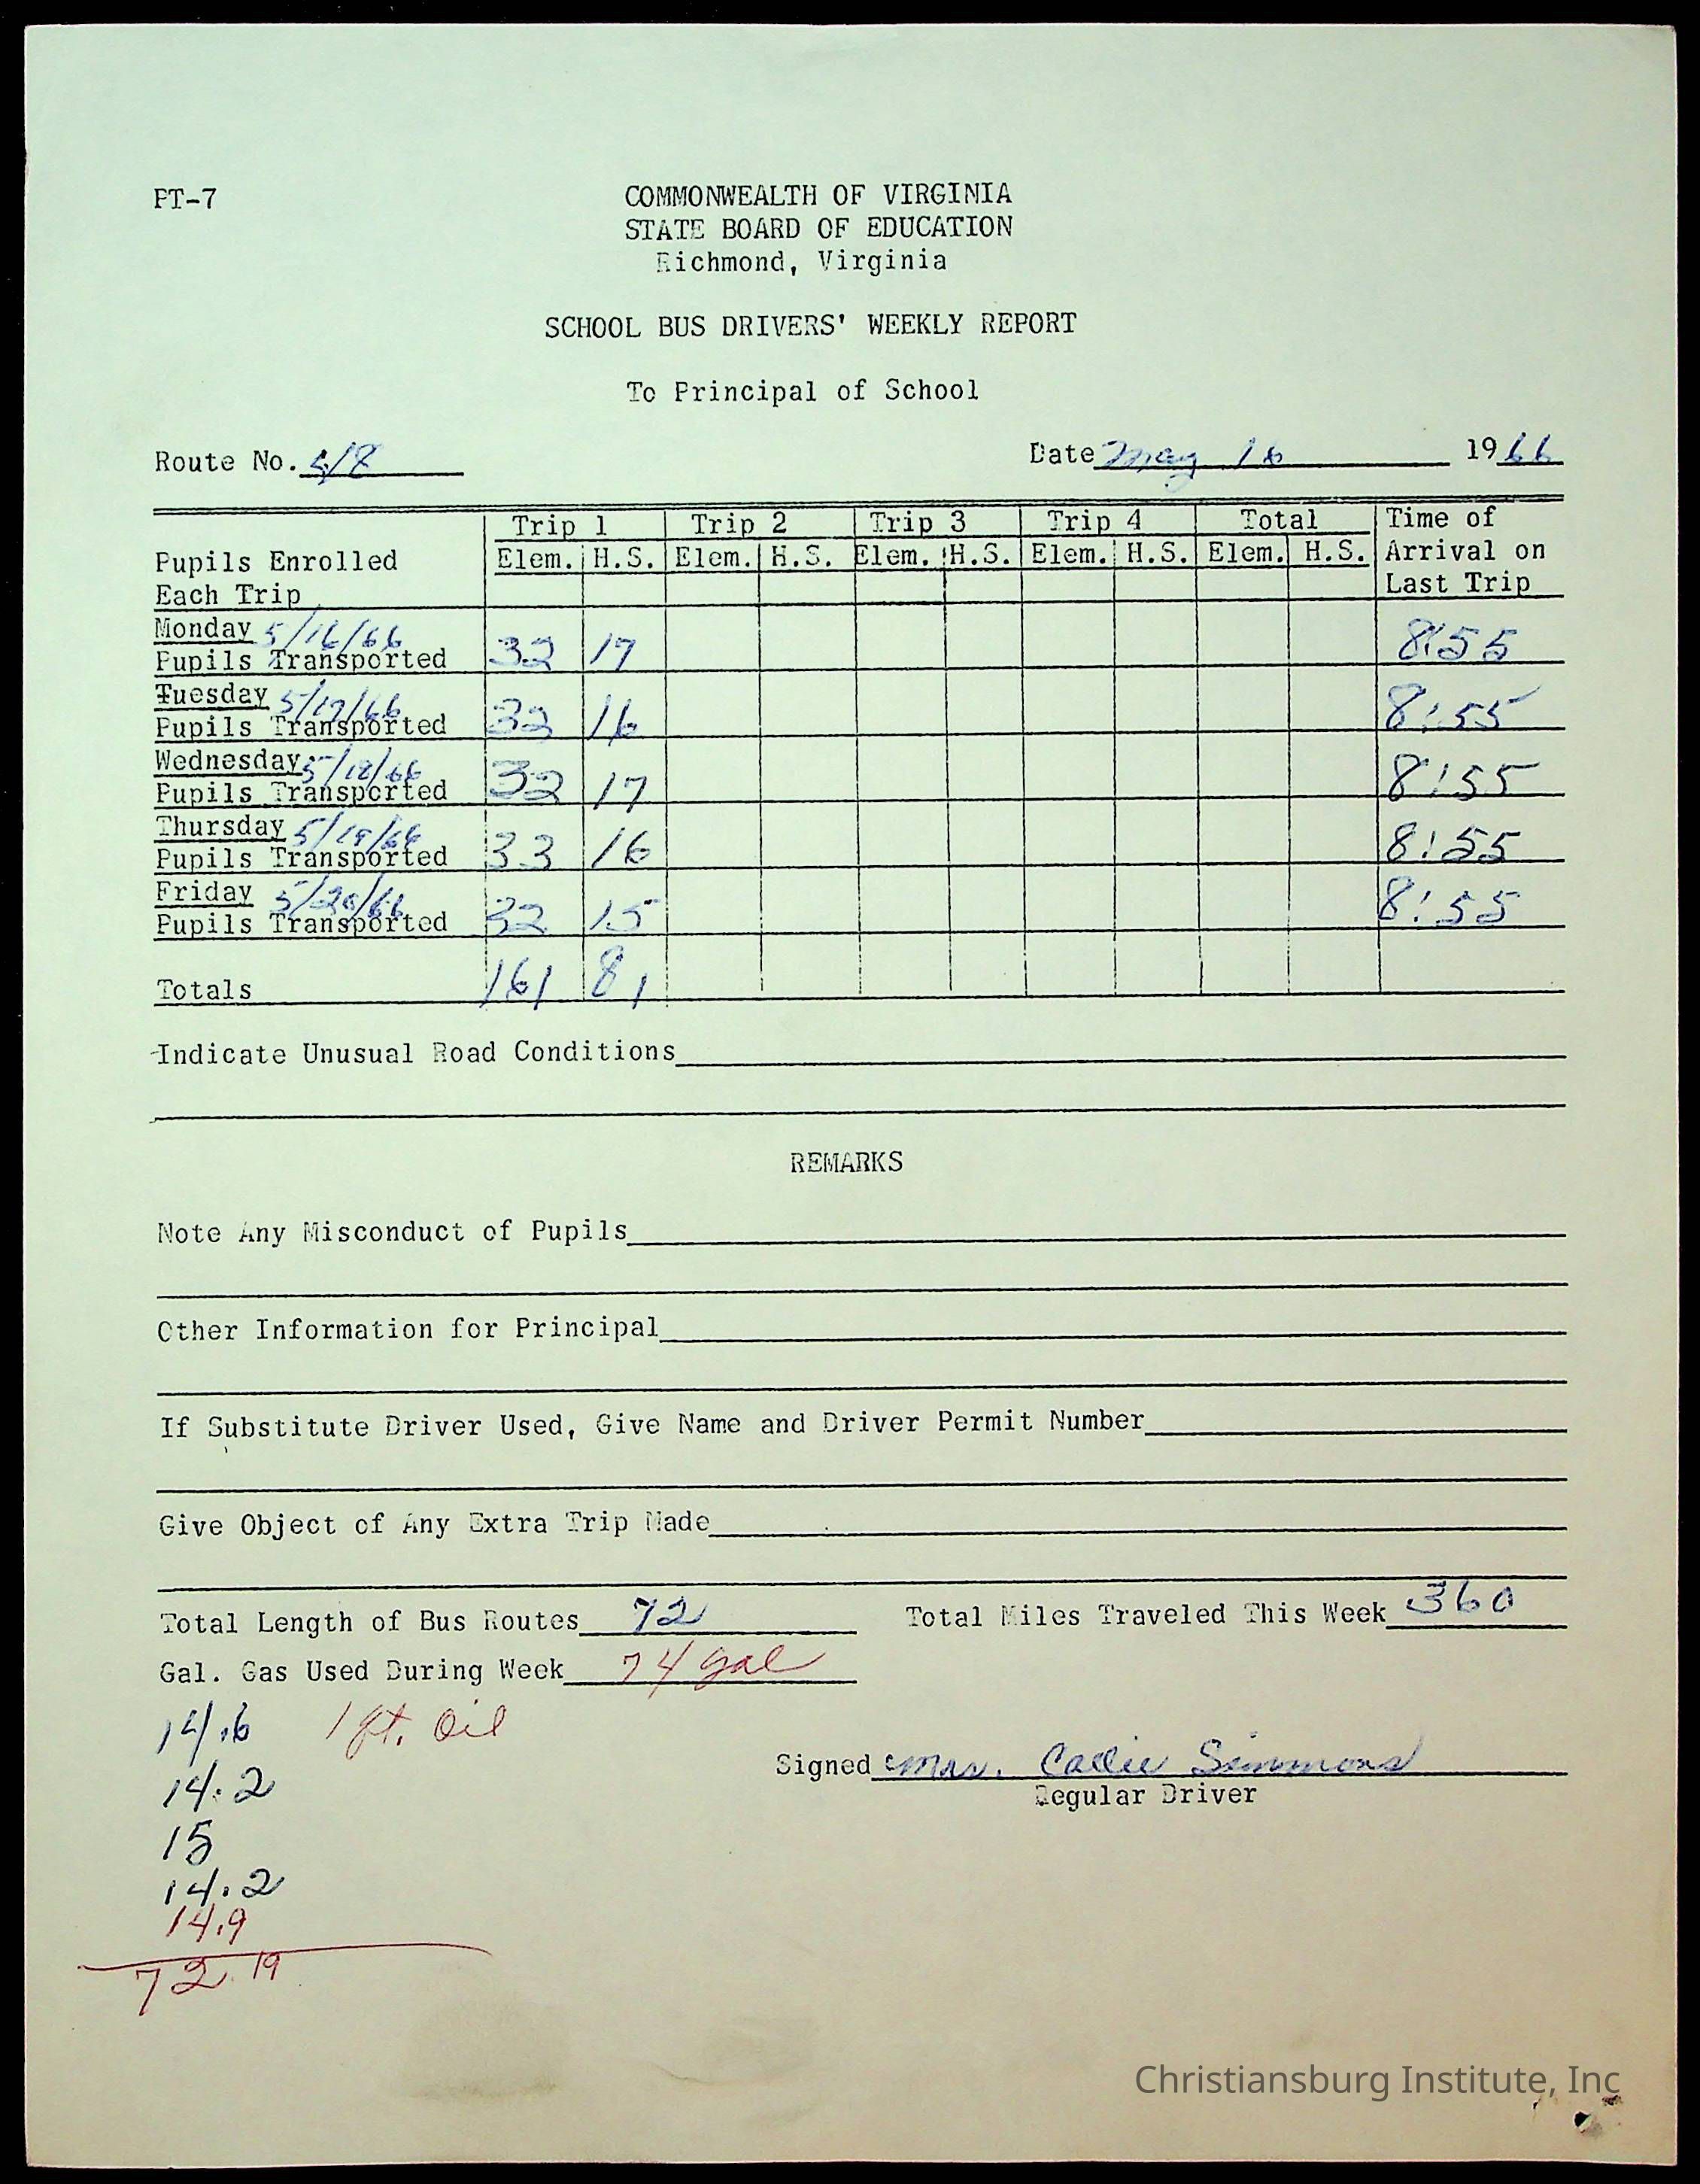 PT-7
COMMONWEALTH OF VIRGINIA
STATE BOARD OF EDUCATION
Richmond, Virginia
SCHOOL BUS DRIVERS' WEEKLY REPORT
To Principal of School
Route No. 48 Date May 16 1966
Trip 1 Trip 2 Trip 3 Trip 4 Total Time of
Pupils Enrolled Elem. H.S. Elem. H.S. Elem. H.S. Elem. H.S. Elem. H.S. Arrival on
Each Trip Last Trip
Monday 5/16/66
Pupils Transported 32 17 8:55
Tuesday 5/17/66
Pupils Transported 32 16 8:55
Wednesday 5/18/66
Pupils Transported 32 17 8:55
Thursday 5/19/66
Pupils Transported 33 16 8:55
Friday 5/20/66
Pupils Transported 32 15 8:55
Totals 161 81
Indicate Unusual Road Conditions
REMARKS
Note Any Misconduct of Pupils
Other Information for Principal
If Substitute Driver Used, Give Name and Driver Permit Number
Give Object of Any Extra Trip Made
Total Length of Bus Routes 72 Total Miles Traveled This Week 360
Gal. Gas Used During Week 74 gal
14.6 1 qt. Oil
14.2
Signed Mrs. Callie Simmons
Regular Driver
15
14.2
14.9
72.19
Christiansburg Institute, Inc